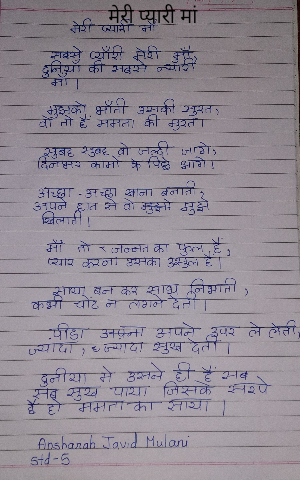 मेरी प्यारी मां
मेरी प्यारी माँ
सबसे प्यारी मेरी माँ,
दुनिया की सबसे न्यारी
माँ।
मुझको भाँती उसकी सुरत,
वो तो हैं ममता की मुरत।
सुबह सुबह वो जल्दी जागे,
दिनभर कामो के पिछे भागे।
अच्छा-अच्छा खाना बनाती,
अपने हात से वो मुझे
खिलाती।
माँ तो जन्नत का फुल हैं,
प्यार करना उसका उसुल हैं।
साया बन कर साथ निभाती,
कभी चोट न लगने देती।
पीडा अपने उपर ले लेती,
ज्यादा, ज्यादा सुख देती।
दुनीया मे उसने ही हैं सब
सब सुख पाया जिसके
हैं हो ममता का साया।
Apsharah Javid Mulani
Std-5